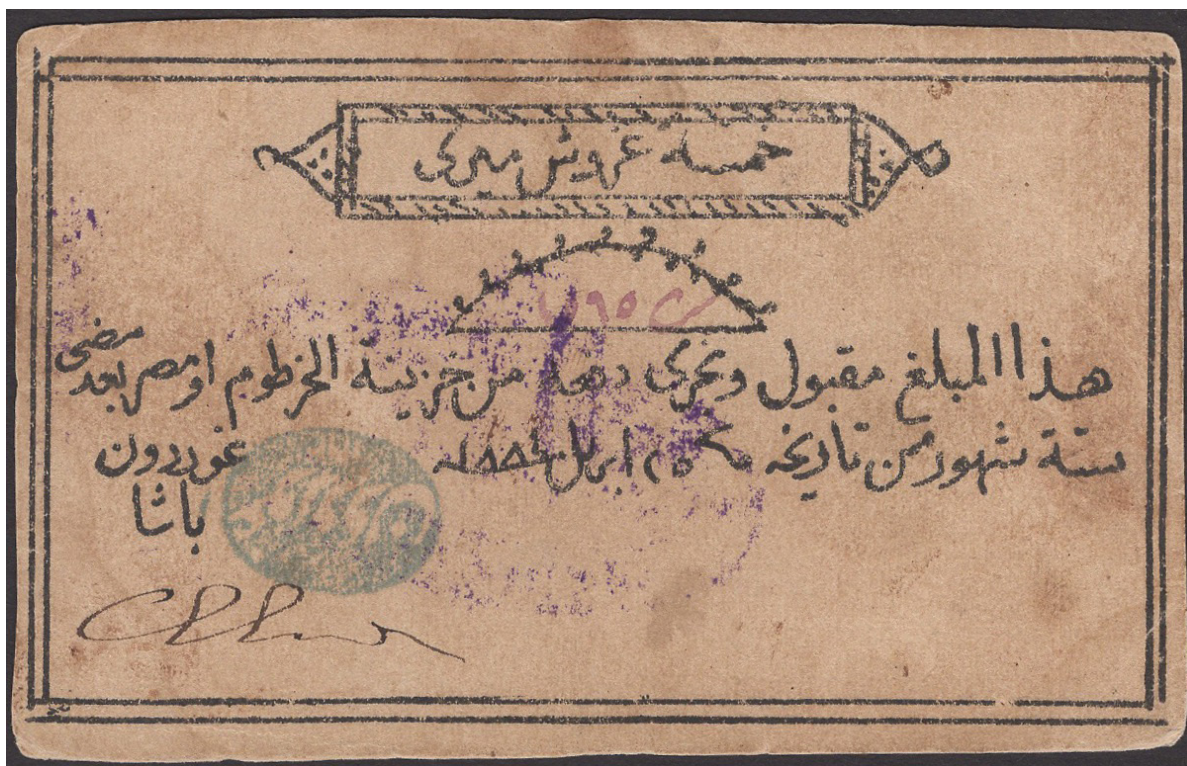 خمسة غروش ميرى
٧٩٥٢
هذا المبلغ مقبول وتجرى دفعه من خزينة الخرطوم او مصر بعد مضى
ستة شهور من تاريخه ٢٥ ابريل ١٨٨٤
غوردون
باشا